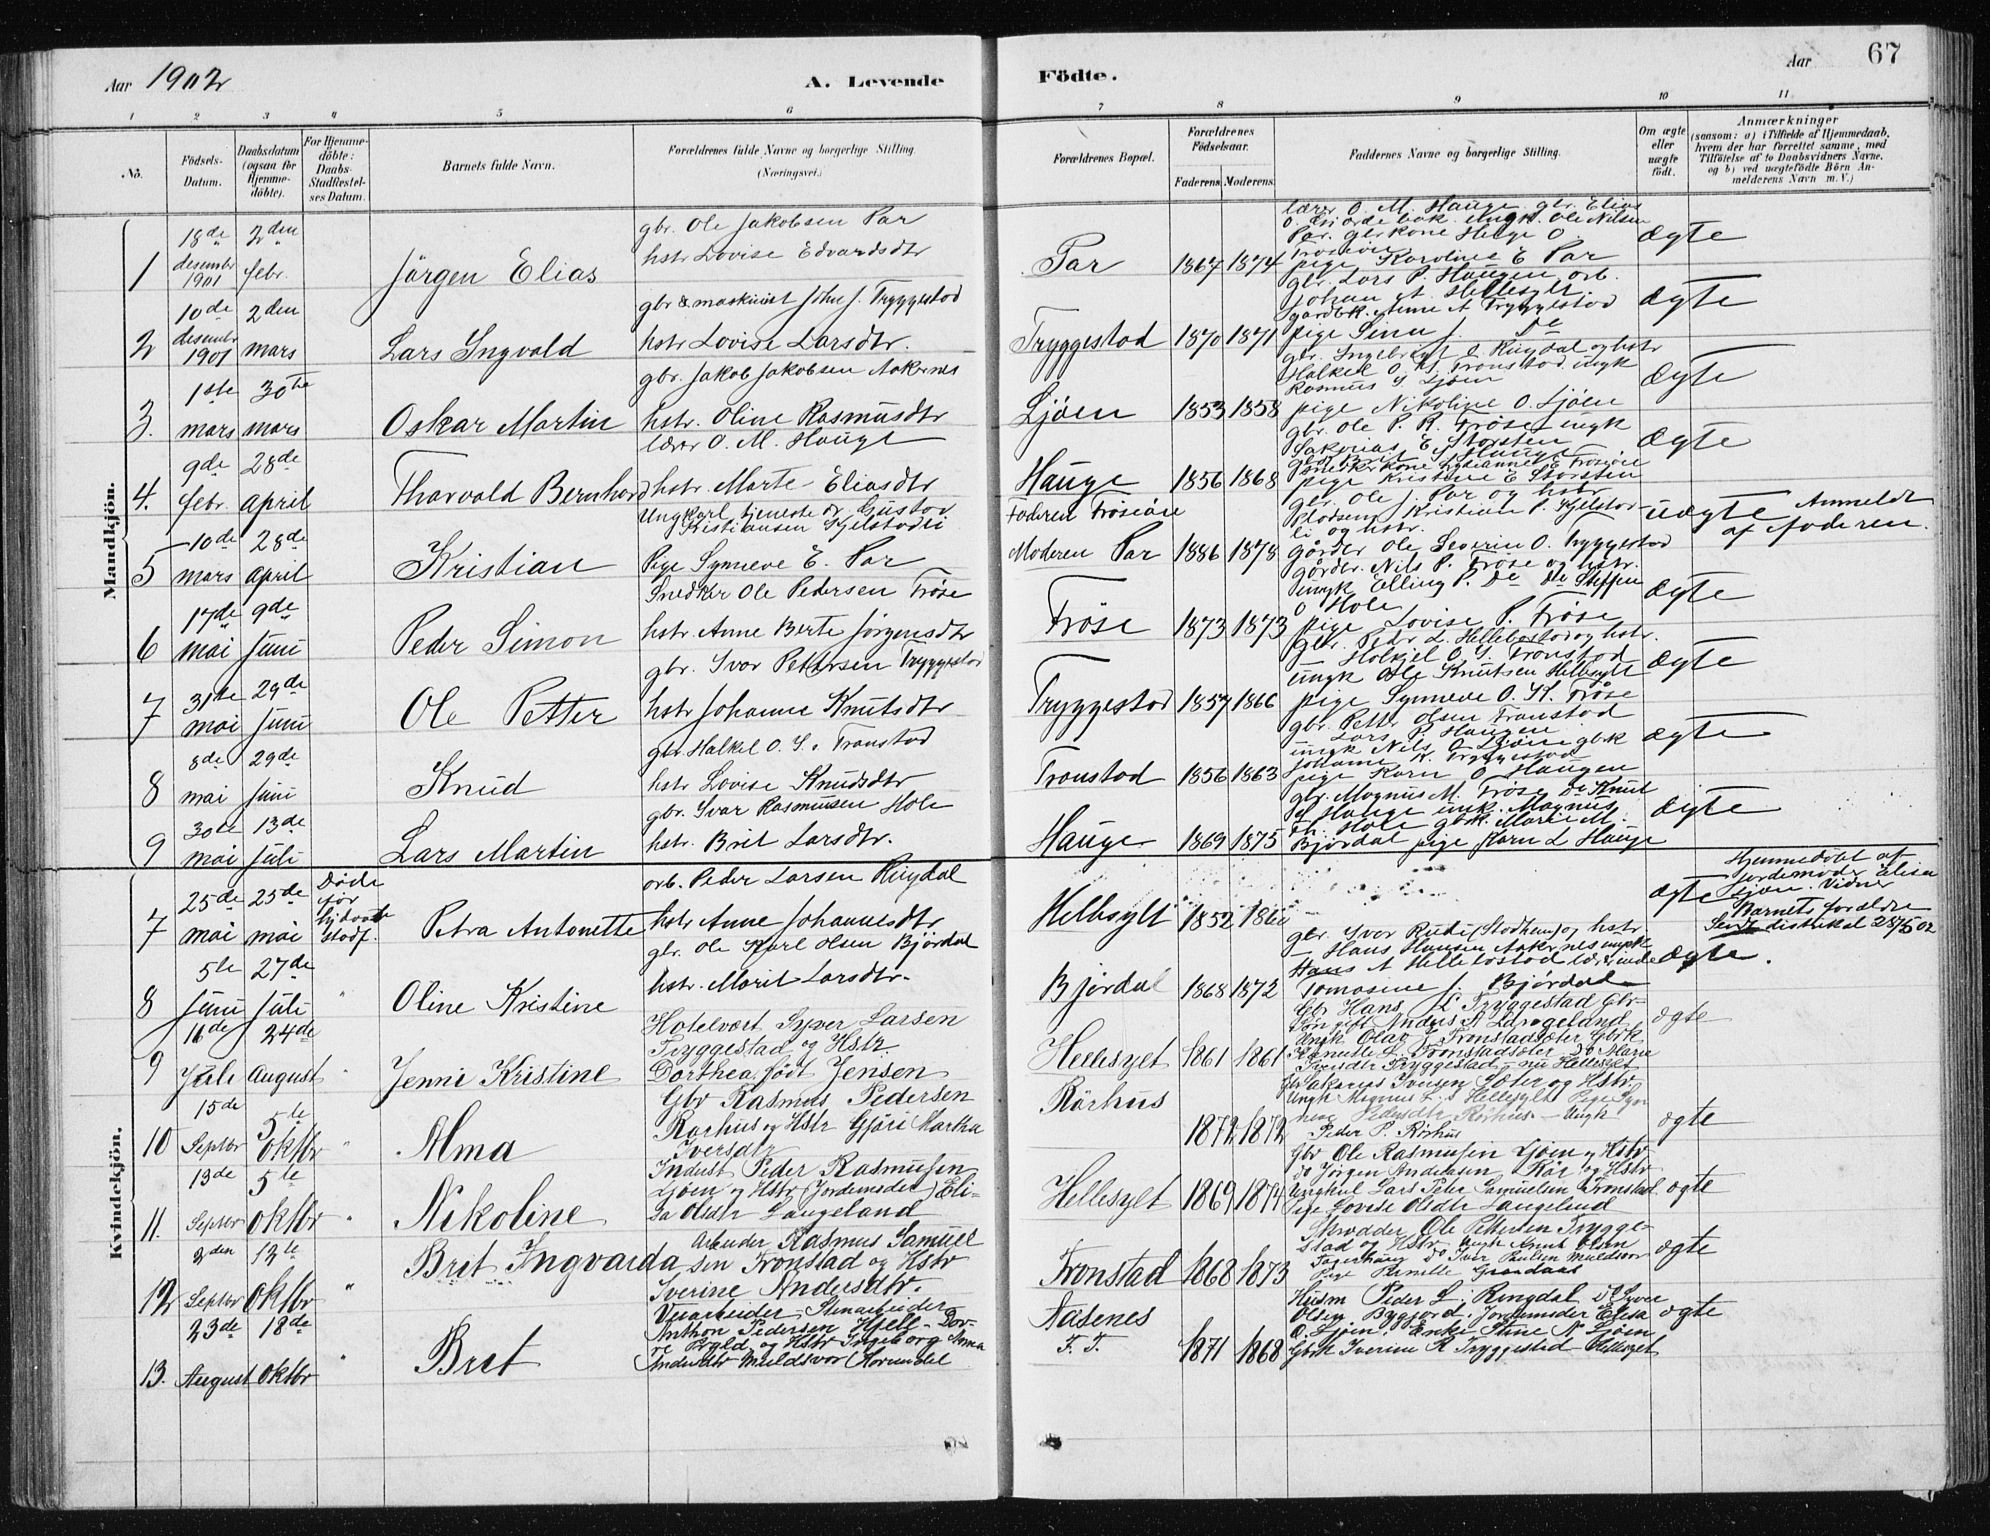 Aar 1902
A. Levende
Födte.
Aar
67
1 2 3 4 5 6 7 8 9 10 11
No.
Födsels-Datum.
Daabsdatum (ogsaa för Hjemme-döbte).
For Hjemme-döbte: Daabs-Stadfæstel-ses Datum.
Barnets fulde Navn.
Forældrenes fulde Navne og borgerlige Stilling.
(Næringsvei.)
Forældrenes Bopæl.
Forældrenes Födselsaar.
Faderens. Moderens.
Faddernes Navne og borgerlige Stilling.
Om ægte eller uægte födt.
Anmærkninger
(saasom: a) i Tilfælde af Hjemmedaab,
hvem der har forrettet samme, med
Tilföielse af to Daabsvidners Navne,
og b) ved uægtefödte Börn An-
melderens Navn m. V.)
Mandkjön.
1 18de desembr 1901 2den febr. Jörgen Elias
gbr. Ole Jakobsen Par
hstr Lovise Edvardsdtr
Par 1867 1874
lærer O. M. Hauge gbr. Elias
Par. gbrkone Helge O.
pige Karoline E Par
ægte
2 10de desembr 1901 2den mars Lars Ingvald
gbr & maskinist John J. Tryggestad
hstr Lovise Larsdtr.
Tryggestad 1870 1871
gbr. Lars P. Haugen arb.
Johan A. Hellesylt
gårdbk. Anne A Tryggestad
pige Sina J. De
ægte
3. 1ste mars 30te mars Oskar Martin
gbr. Jakob Jakobsen Aakernes
hstr. Oline Rasmusdtr
Ljöen 1853 1858
gbr. Ingebrigt O. Ringdal og hstr
Halkel O. S. Tronstad ungk
Rasmus S. Ljöen
pige Nikoline O. Ljöen
ægte
4. 9de febr. 28de april Thorvald Bernhard
lærer O. M. Hauge
hstr. Marte Eliasdtr
Hauge 1856 1868
gbr. Ole P. R. Fröse ungk
Sakarias E Storsten
pige Kristine E Storsten
ægte
5 10de mars 28de april Kristian
Ungkarl tjeneste dr Gustav
Kristiansen Gjelstadli
Pige Synneve E. Par
Faderen Fröseöie
Moderen Par 1886 1878
gbr. Ole J. Par og hstr
Plodsm. Kristian P. Gjelstad-
li og hstr.
gårdbr Ole Severin O. Tryggestad
uægte
Anmeldt
af faderen.
6 17de mai 9de Juni Peder Simon
Snedker Ole Pedersen Fröse
hstr. Anne Berte Jörgensdtr
Fröse 1873 1873
gårdbr. Nils P. Fröse og hstr.
ungk Elling P. De De Steffen
O Hole
pige Lovise P. Fröse
ægte
7 31te mai 29de Juni Ole Petter
gbr. Ivar Petersen Tryggestad
hstr Johanne Knutsdtr
Tryggestad 1857 1866
gbr. Peder L. Hellebostad og hstr.
Halkel O S. Tronstad
ungk Ole Knutsen Hellesylt
pige Synneve O. K. Fröse
ægte
8 8de mai 29de Juni Knud
gbr. Halkel O. S. Tronstad
hstr Lovise Knudsdtr
Tronstad 1856 1863
gbr Petter Olsen Tronstad
Lars P. Haugen
ungk Nils O Ljöen gbk
Johanne K. Tryggestad
pige Karn O Haugen
ægte
9 30te mai 13de Juli Lars Martin
gbr. Ivar Rasmusen Hole
hstr. Brit Larsdtr.
Hauge 1869 1875
gbr. Magnus M. Fröse De Knut
S Hauge ungk. Magnus
Th. Hole gbk. Marie M.
Björdal pige Karn L Hauge
ægte
Kvindekjön.
7 25de mai 25de mai Döde för hjdaabs stadf. Petra Antonette
arb. Peder Larsen Ringdal
hstr Anne Johannesdtr
Hellesylt 1852
ægte
Hjemmedöbt af
jordemoder Elisa
Ljöen. Vidner
Barnets foreldre
Sendt distriktet 28/5 02
8 5te Juni 27de Juli " Oline Kristine
gbr. Ole Karl Olsen Björdal
hstr. Marit Larsdtr.
Björdal 1868 1872
gbr. Ivar Rudi (Stadheim) og hstr
Hans Hansen Aakernes ungk
Hans A Hellebostad lærerinde
Tomasine J. Björdal
ægte.
9 16de Juli 24de August " Jenni Kristine
Hotelvert Syver Larsen
Tryggestad og Hstr.
Dorthea födt Jensen
Hellesylt 1861 1861
Gbr Hans L Tryggestad Gbr-
sön gift Anders A Langeland
Ungk Olav E Tronstadsæter Gbrk
Pernille L. Tronstadsæter Do Marie
Iversdtr Tryggestad - nu Hellesylt
ægte
10 15de Septbr 5te oktbr " Alma
Gbr Rasmus Pedersen
Rørhus og Hstr Gjöri Martha
Iversdtr
Rörhus 1872 1872
Gbr Sakarias Iversen Sæter og Hstr.
Ungk Magnus L. S Hellesylt Pige Syn
neve Pedersdtr Rörhus - Ungk
Peder P. Rörhus
ægte
11. 13de Septbr 5te oktbr " Nikoline
Indust Peder Rasmusen
Ljöen og Hstr (Jordemoder) Eli-
sa Olsdtr Langeland
Hellesylt 1869 1874
Gbr Ole Rasmusen Ljöen og Hstr
do Jörgen Andersen Kår og Hstr
Ungkarl Lars Peter Samuelsen Tronstad
Pige Lovise Olsdtr Langeland
ægte
12 2den Septbr 12te oktbr " Brit Ingvarda
Arbeider Rasmus Samuel
sen Tronstad og Hstr
Iverine Andersdtr.
Tronstad 1868 1873
Skrædder Ole Pettersen Trygge-
stad og Hstr Ungk Knut Olsen
do Iver Paulsen Muldsvor
Pige Pernille
ægte
13. 23de August 18de oktbr " Bret
Veiarbeider Stenarbeider
Anthon Pedersen Hjell - Dov-
re og Hstr Ingeborg Anna
Andersdtr Muldsvor Norundal
Aasenes
F. T. 1871 1868
Husm Peder L. Ringdal Do Syver
Olsen Bygjord, Jordemoder Elisa
O. Ljöen, Enke Stine N. Ljöen
Gbrk Iverine R Tryggestad Hellesylt
ægte